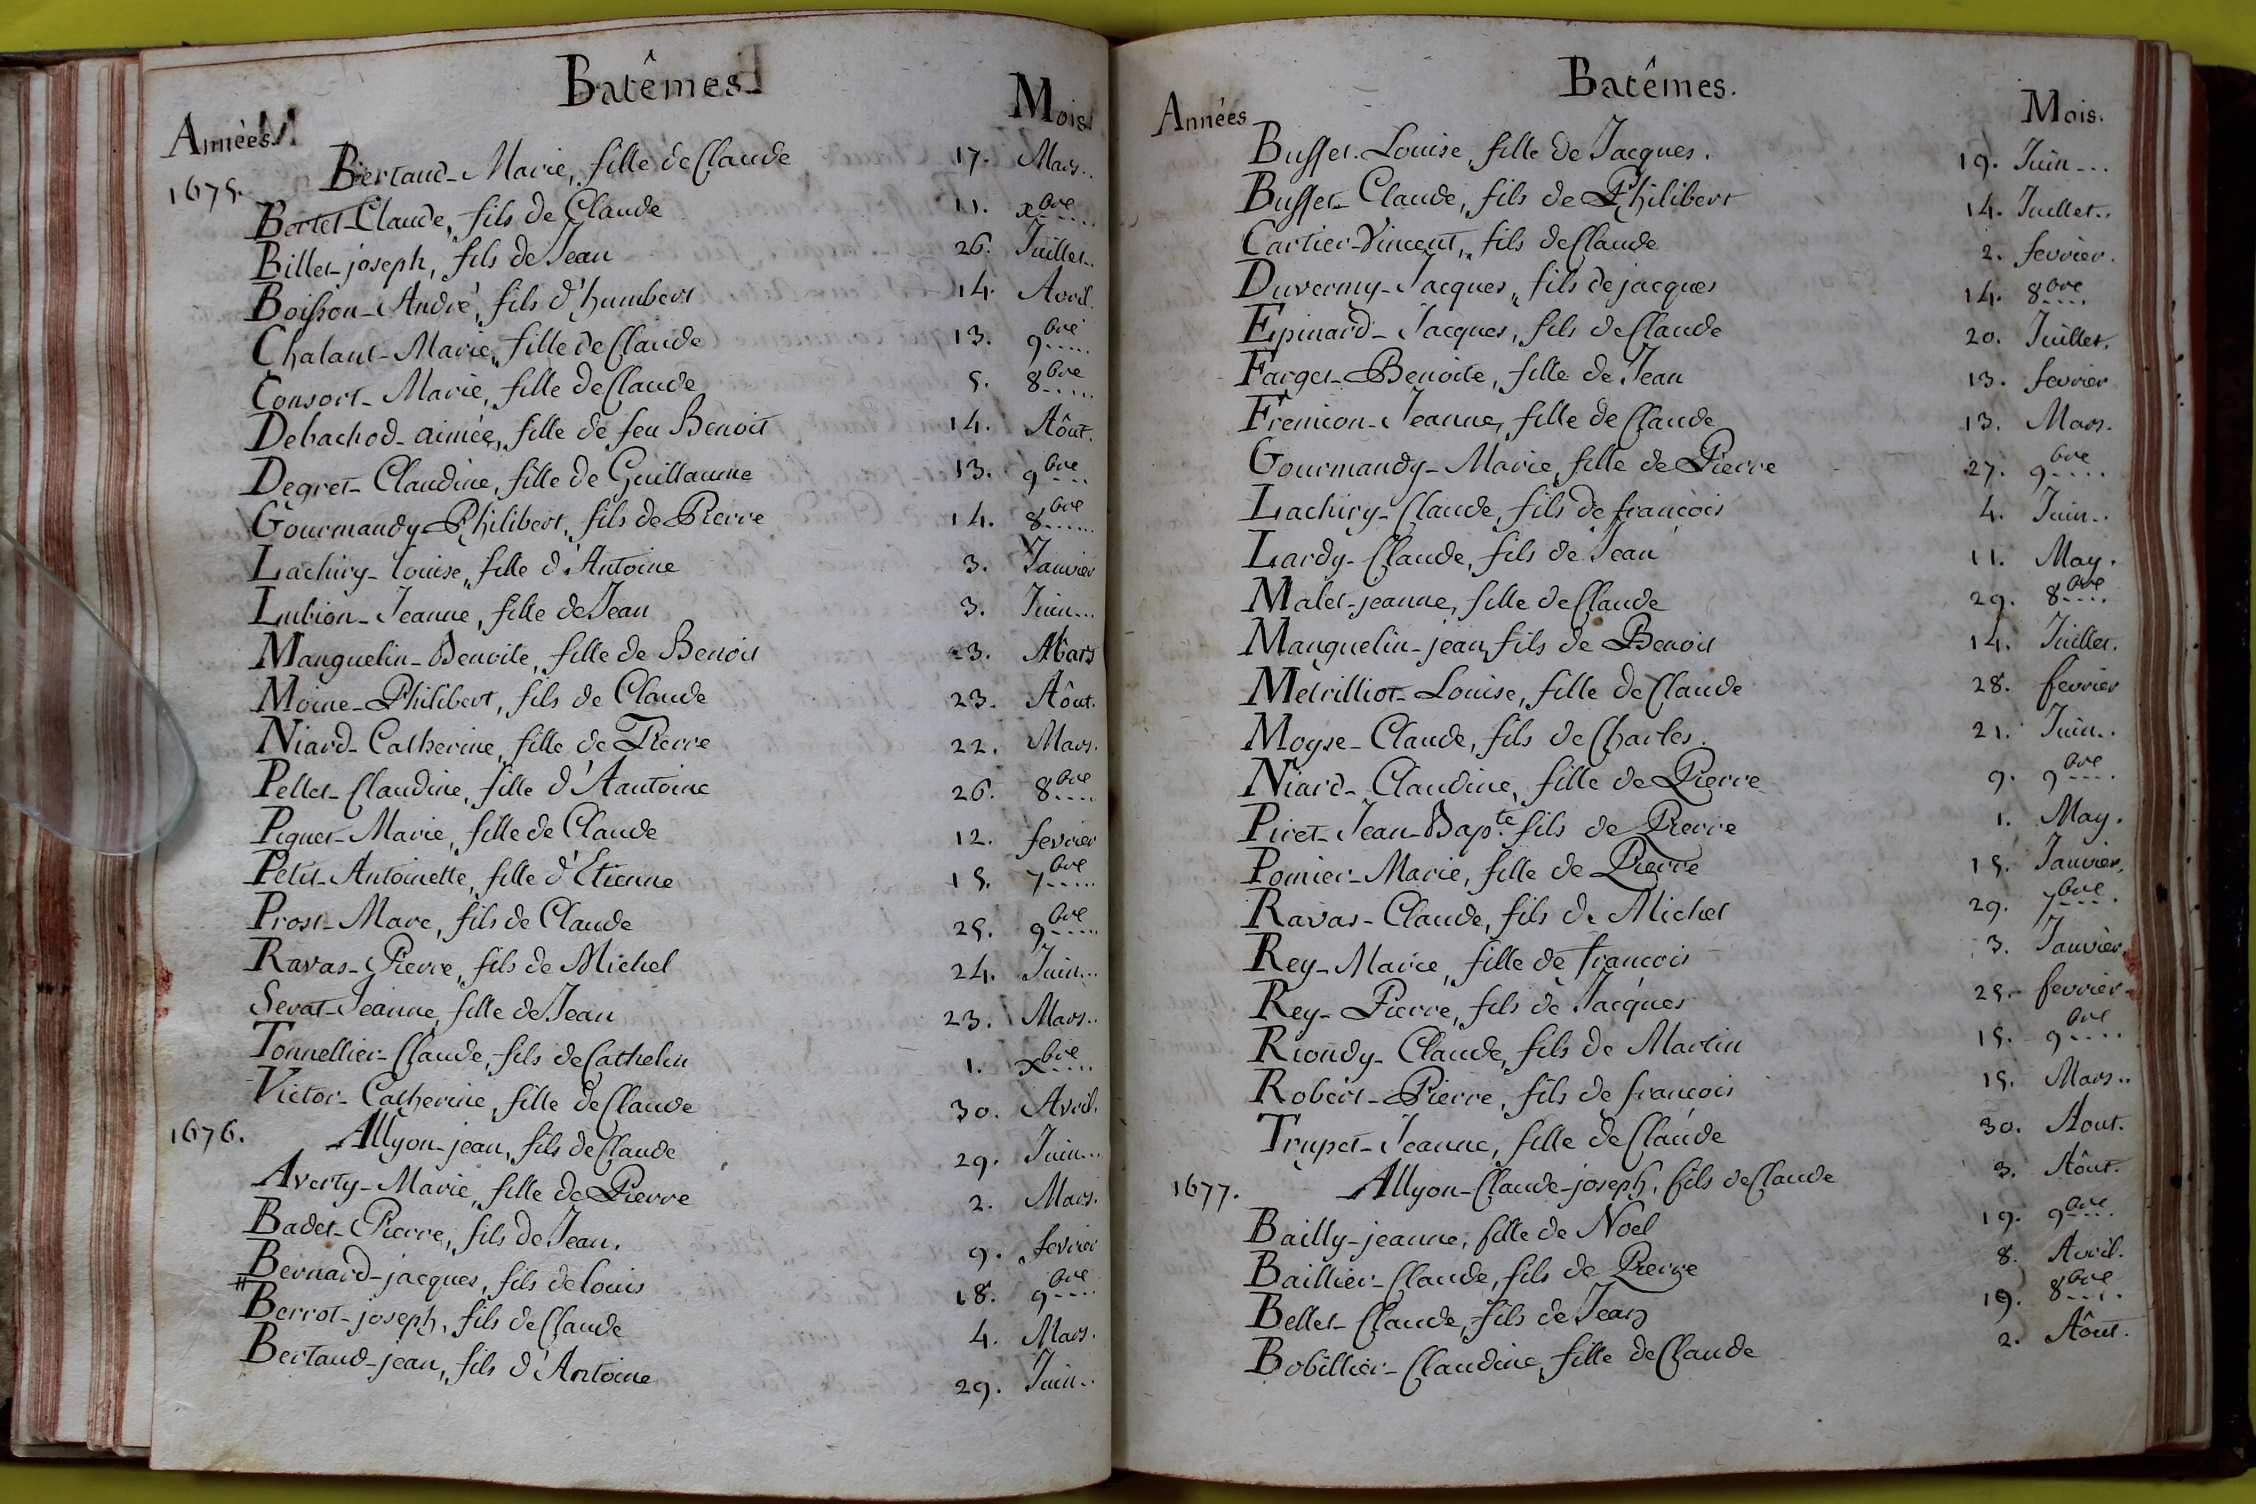 Batêmes.
Années. Mois.
1675. Bertaud-Marie, fille de Claude 17. Mars..
Bertet-Claude, fils de Claude 11. xbre....
Billet-joseph, fils de Jean 26. Juillet..
Boisson-André, fils d'humbert 14. Avril.
Chalant-Marie, fille de Claude 13. 9bre.....
Consort-Marie, fille de Claude 5. 8bre.....
Debachod-aimée, fille de feu Benoit 14. Aôut.
Degret-Claudine, fille de Guillaume 13. 9bre....
Gourmandy-Philibert, fils de Pierre 14. 8bre......
Lachiry-louise, fille d'Antoine 3. Janvier
Lubion-Jeanne, fille de Jean 3. Juin...
Manguelin-Benoite, fille de Benoit 23. Mars
Moine-Philibert, fils de Claude 23. Aôut.
Niard-Catherine, fille de Pierre 22. Mars.
Pellet-Claudine, fille d'Aantoine 26. 8bre....
Piquet-Marie, fille de Claude 12. fevrier
Petit-Antoinette, fille d'Etienne 15. 7bre.....
Prost-Marc, fils de Claude 25. 9bre.....
Ravas-Pierre, fils de Michel 24. Juin...
Serat-Jeanne, fille de Jean 23. Mars..
Tonnellier-Claude, fils de Cathelin 1. xbre.....
Victor-Catherine, fille de Claude 30. Avril.
1676. Allyon-jean, fils de Claude 29. Juin...
Averty-Marie, fille de Pierre 2. Mars.
Badet-Pierre, fils de Jean. 9. fevrier
Bernard-jacques, fils de louis 18. 9bre....
# Berrot-joseph, fils de Claude 4. Mars.
Bertaud-jean, fils d'Antoine 29. Juin..
Batêmes.
Années Mois.
Busset-Louise, fille de Jacques. 19. Juin...
Busset-Claude, fils de Philibert 14. Juillet..
Cartier-Vincent, fils de Claude 2. fevrier.
Duverny-Jacques, fils de jacques 14. 8bre....
Epinard-Jacques, fils de Claude 20. Juillet.
Farget-Benoite, fille de Jean 13. fevrier
Fremion-Jeanne, fille de Claude 13. Mars.
Gourmandy-Marie, fille de Pierre 27. 9bre....
Lachiry-Claude, fils de francois 4. Juin..
Lardy-Claude, fils de Jean 11. May.
Malet-jeanne, fille de Claude 29. 8bre....
Manguelin-jean, fils de Benoit 14. Juillet.
Metrilliot-Louise, fille de Claude 28. fevrier
Moyse-Claude, fils de Charles. 21. Juin..
Niard-Claudine, fille de Pierre 9. 9bre....
Piret-Jean-Bapte. fils de Pierre 1. May.
Pomier-Marie, fille de Pierre 15. Janvier.
Ravas-Claude, fils de Michel 29. 7bre....
Rey-Marie, fille de francois 3. Janvier.
Rey-Pierre, fils de Jacques 25. fevrier.
Riondy-Claude, fils de Martin 15. 9bre....
Robert-Pierre, fils de francois 15. Mars..
Trupet-Jeanne, fille de Claude 30. Aout.
1677. Allyon-Claude-joseph, fils de Claude 3. Aôut.
Bailly-jeanne, fille de Noel 19. 9bre....
Baillier-Claude, fils de Pierre 8. Avril.
Bellet-Claude, fils de Jean 19. 8bre....
Bobillier-Claudine, fille de Claude 2. Aôut.